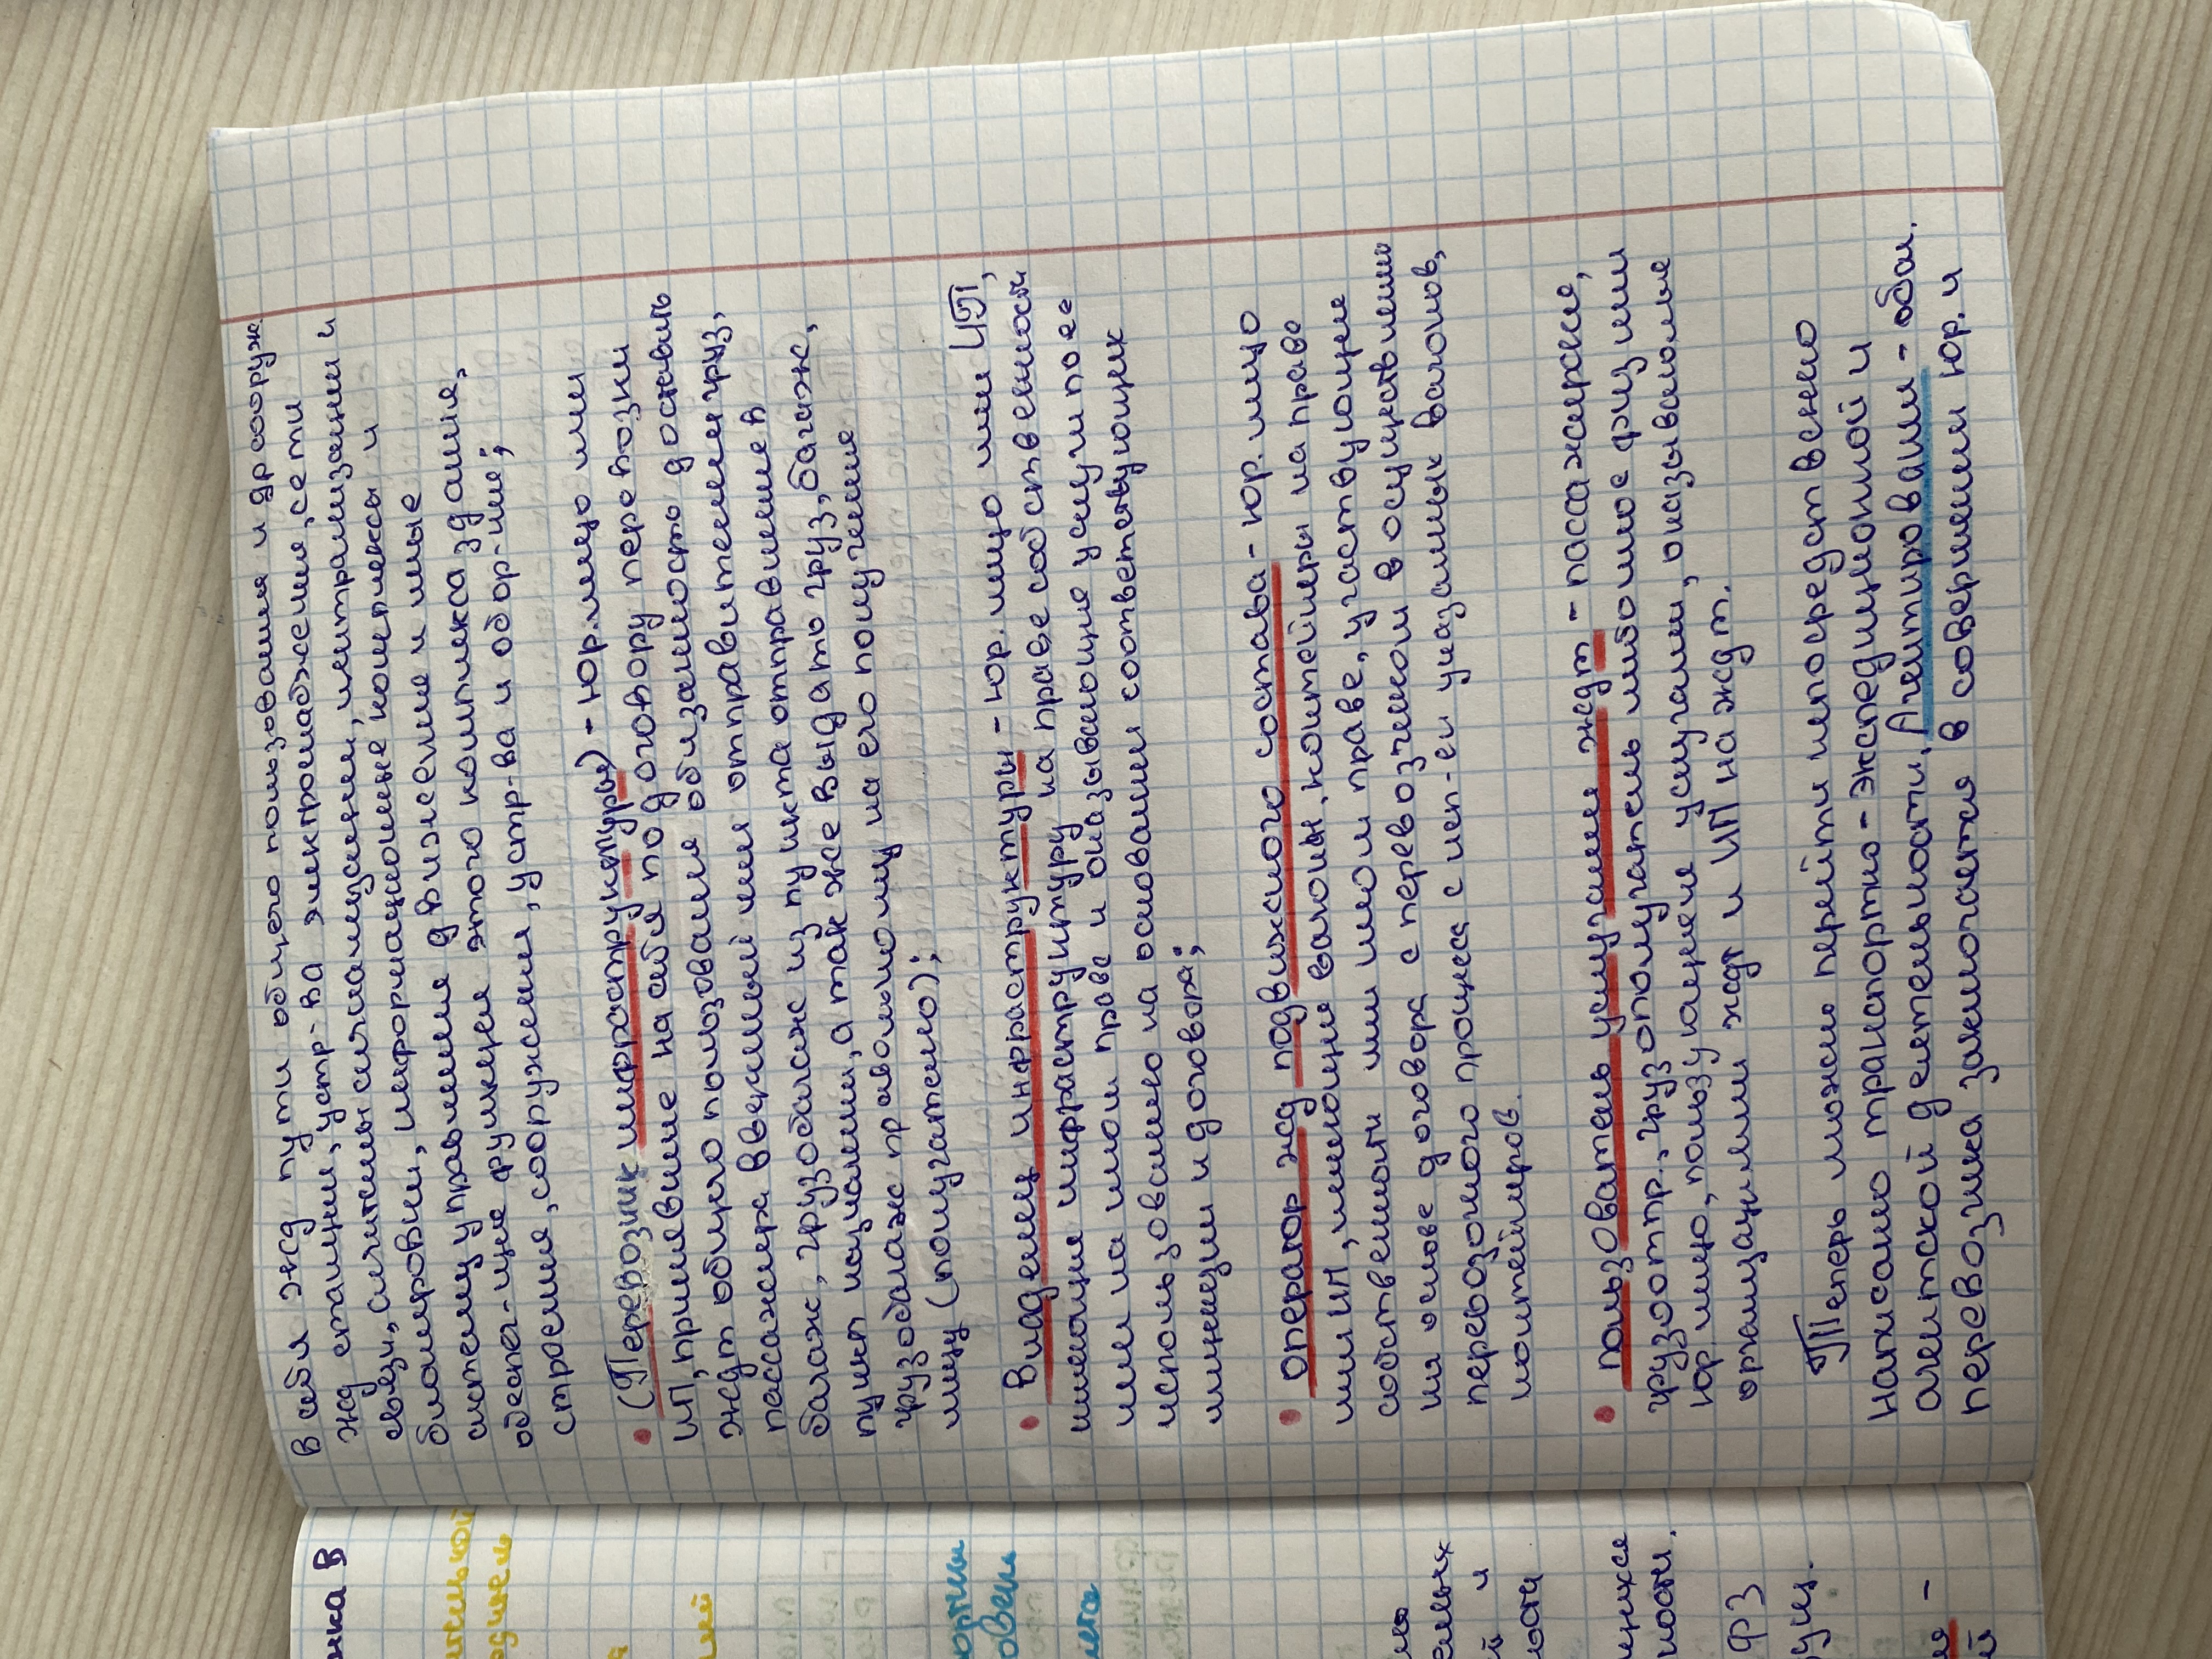 в себя жд пути общего пользования и др сооруж.
жд станции, устр-ва электроснабжения, сети
связи, системы сигнализации, централизации и
блокировки, информационные комплексы и
систему управления движением и иные
обеспеч-щие функцион этого комплекса здания,
строения, сооружения, устр-ва и обор-ние;
• (Перевозчик инфраструктуры) - юр.лицо или
ИП, принявшие на себя по договору перевозки
ждт общего пользования обязанность доставить
пассажира вверенный им отправителем груз,
багаж, грузобагаж из пункта отправления в
пункт назначения, а так же выдать груз, багаж,
грузобагаж правомочному на его получение
лицу (получателю);
• Владелец инфраструктуры - юр. лицо или ИП,
имеющие инфраструктуру на праве собственности
или на ином праве и оказывающие услуги по ее
использованию на основании соответствующих
лицензии и договора;
• оператор жд подвижного состава - юр. лицо
или ИП, имеющие вагоны, контейнеры на праве
собственности или ином праве, участвующие
на основе договора с перевозчиком в осуществлении
перевозочного процесса с исп-ем указанных вагонов,
контейнеров.
• пользователь услугами ждт - пассажир,
грузоотпр., грузополучатель либо иное физ или
юр лицо, пользующиеся услугами, оказываемые
организациями ждт и ИП на ждт.
Теперь можем перейти непосредственно
написано транспортно-экспедиционной и
агентской деятельности. Агентирование - обл.
перевозчика заключается в совершении юр. и
нка В
ности
ФЗ